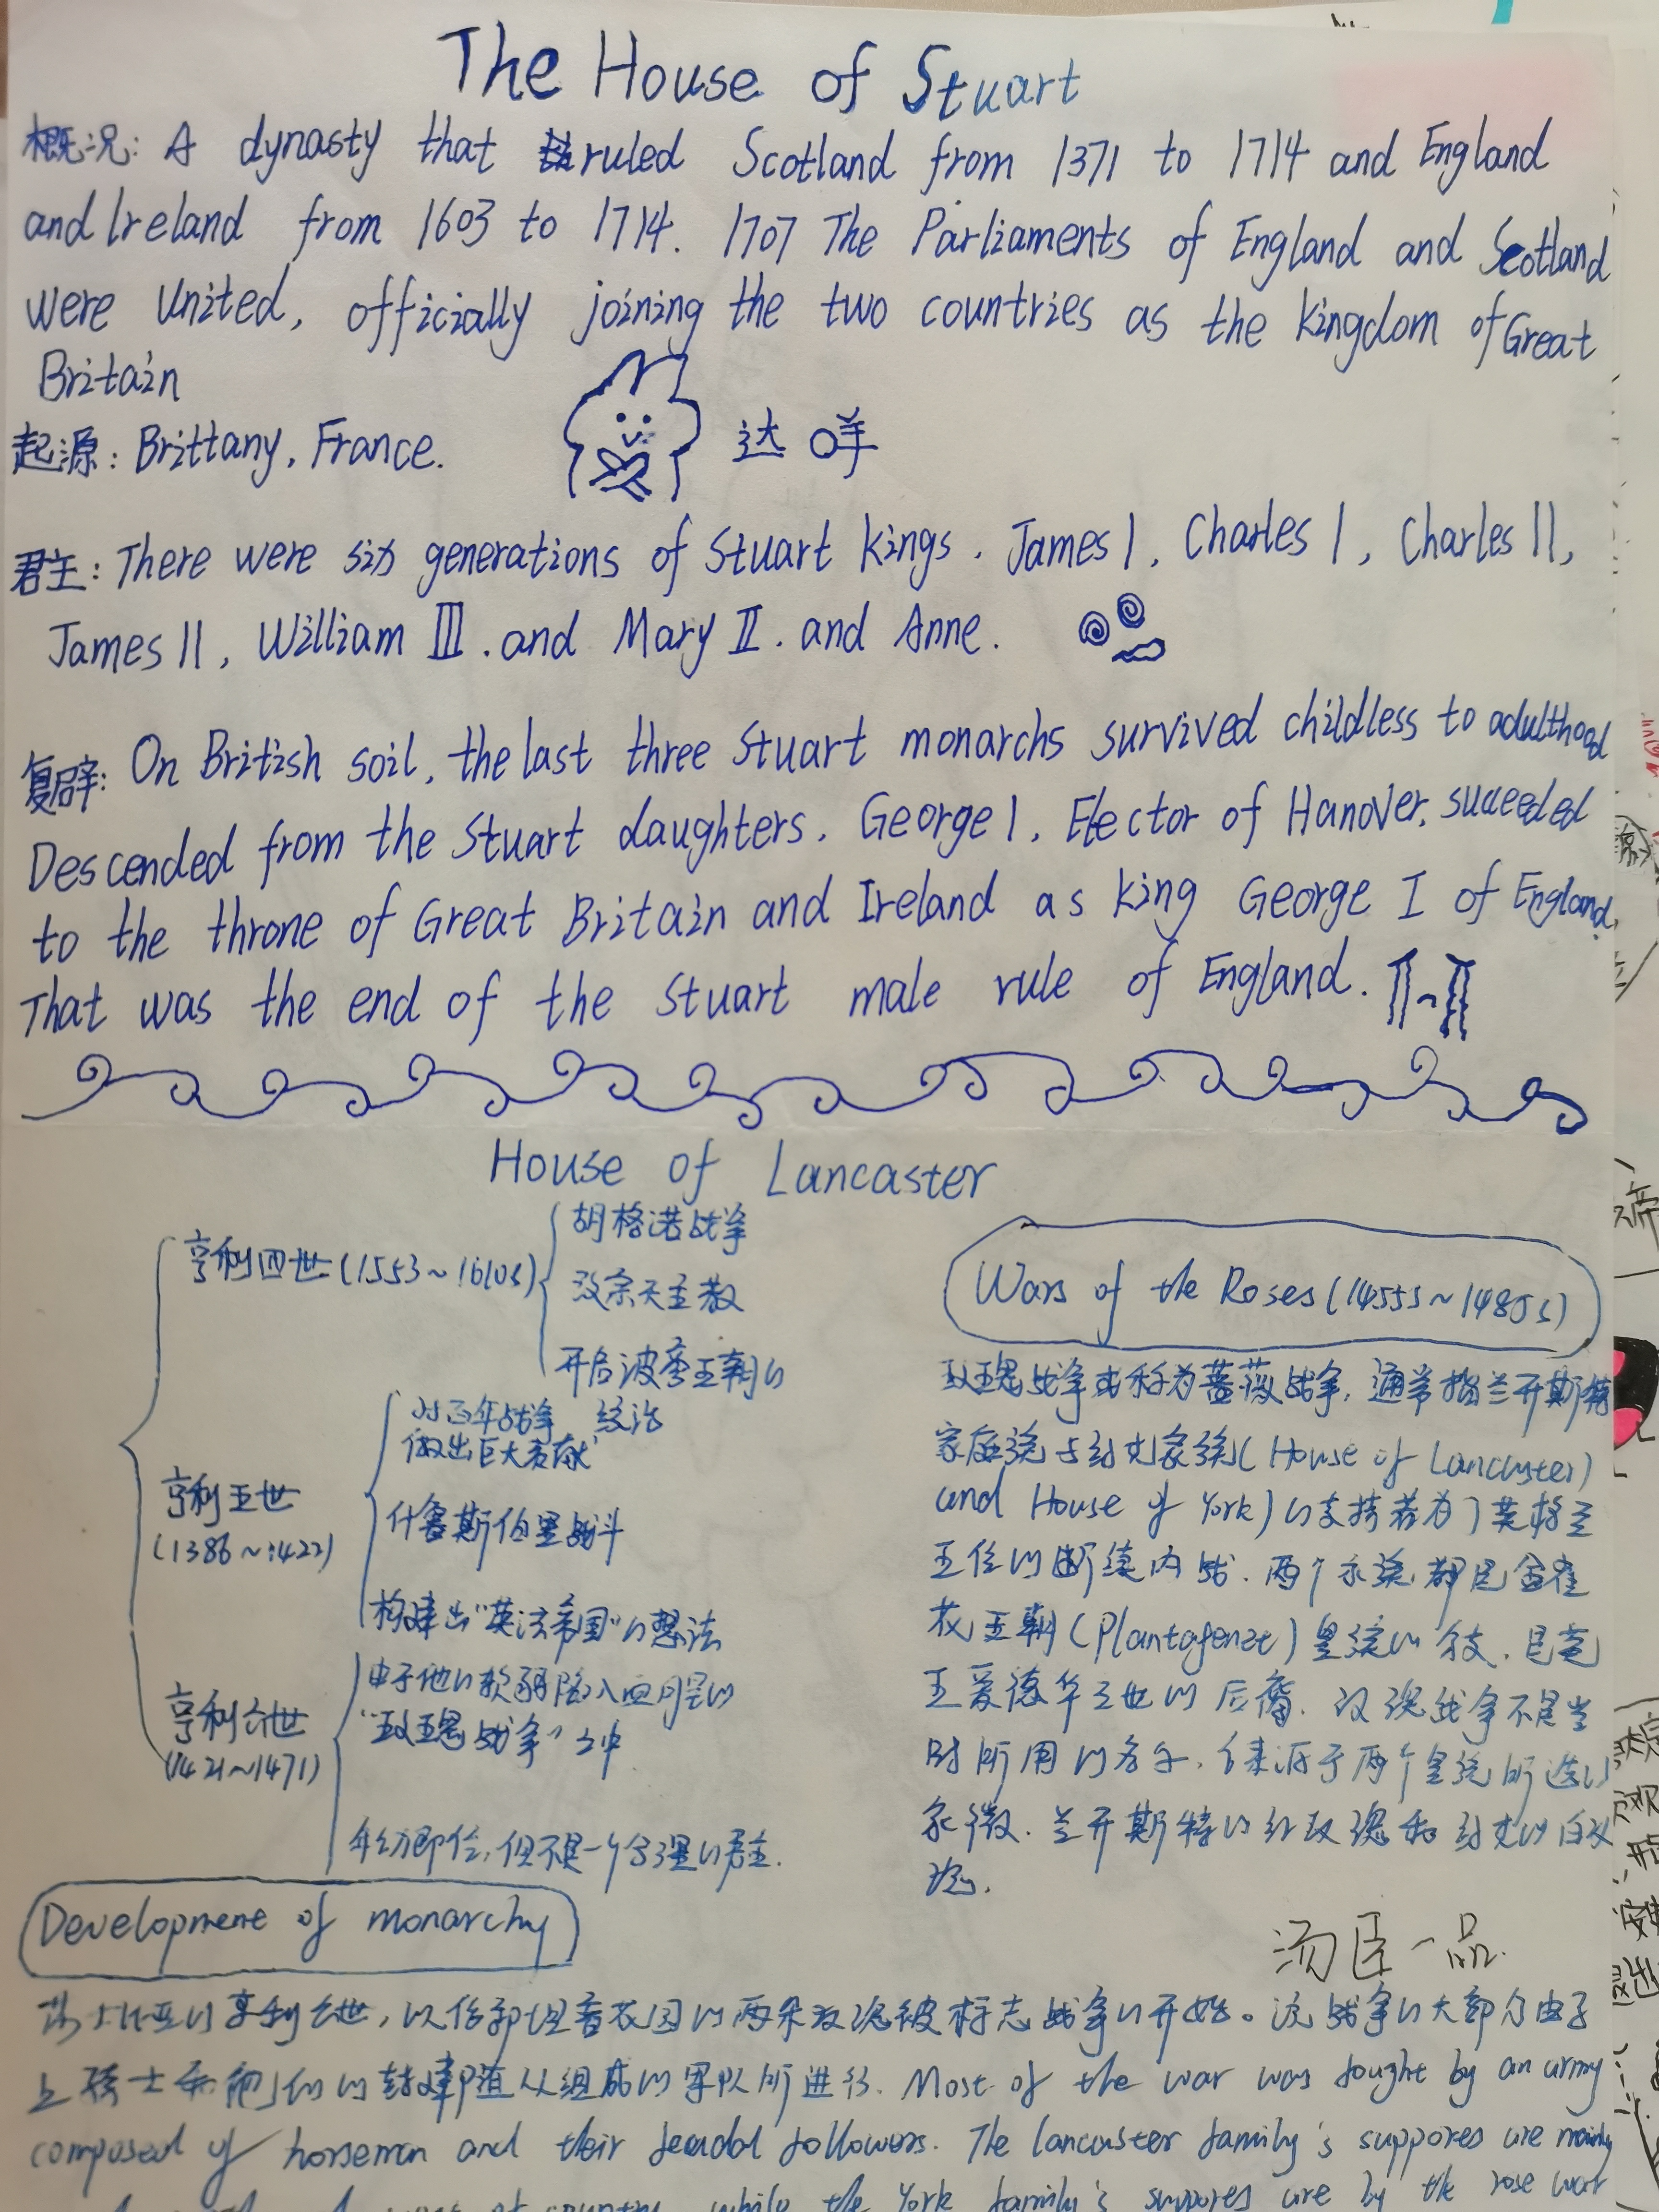 The House of Stuart
概况: A dynasty that ruled Scotland from 1371 to 1714 and England
and Ireland from 1603 to 1714. 1707 The Parliaments of England and Scotland
were United, officially joining the two countries as the kingdom of Great
Britain
起源: Brittany, France.
达咩
君主: There were six generations of Stuart kings. James I, Charles I, Charles II,
James II, William III. and Mary II. and Anne.
复辟: On British soil, the last three Stuart monarchs survived childless to adulthood
Descended from the Stuart daughters, George I, Elector of Hanover, succeeded
to the throne of Great Britain and Ireland as king George I of England.
That was the end of the Stuart male rule of England.
House of Lancaster
亨利四世(1553~1610s)
胡格诺战争
改宗天主教
开启波旁王朝的
统治
亨利五世
(1386~1422)
对百年战争
做出巨大贡献
什鲁斯伯里战斗
构建出“英法帝国”的想法
亨利六世
(1421~1471)
由于他的软弱陷入血腥的
“玫瑰战争”之中
年幼即位,但不是一个合理的君主.
Wars of the Roses(1455s~1485s)
玫瑰战争或称为蔷薇战争, 通常指兰开斯特
家族与约克家族(House of Lancaster)
and House of York)的支持者为了英格兰
王位的断续内战. 两个家族都是金雀
花王朝(Plantagenet)皇族的分支, 是英
王爱德华三世的后裔. 玫瑰战争不是当
时所用的名字, 它来源于两个皇族所选的
家徽. 兰开斯特的红玫瑰和约克的白玫
瑰.
汤臣一品.
Development of monarchy
莎士比亚的亨利六世, 以 两朵玫瑰被标志战争的开始。这战争的大部分由于
上骑士和他们的封建随从组成的军队所进行. Most of the war was fought by an army
composed of horseman and their feudal followers. The lancaster family's suppores are mainly
country, while the York family's suppores are by the rose war